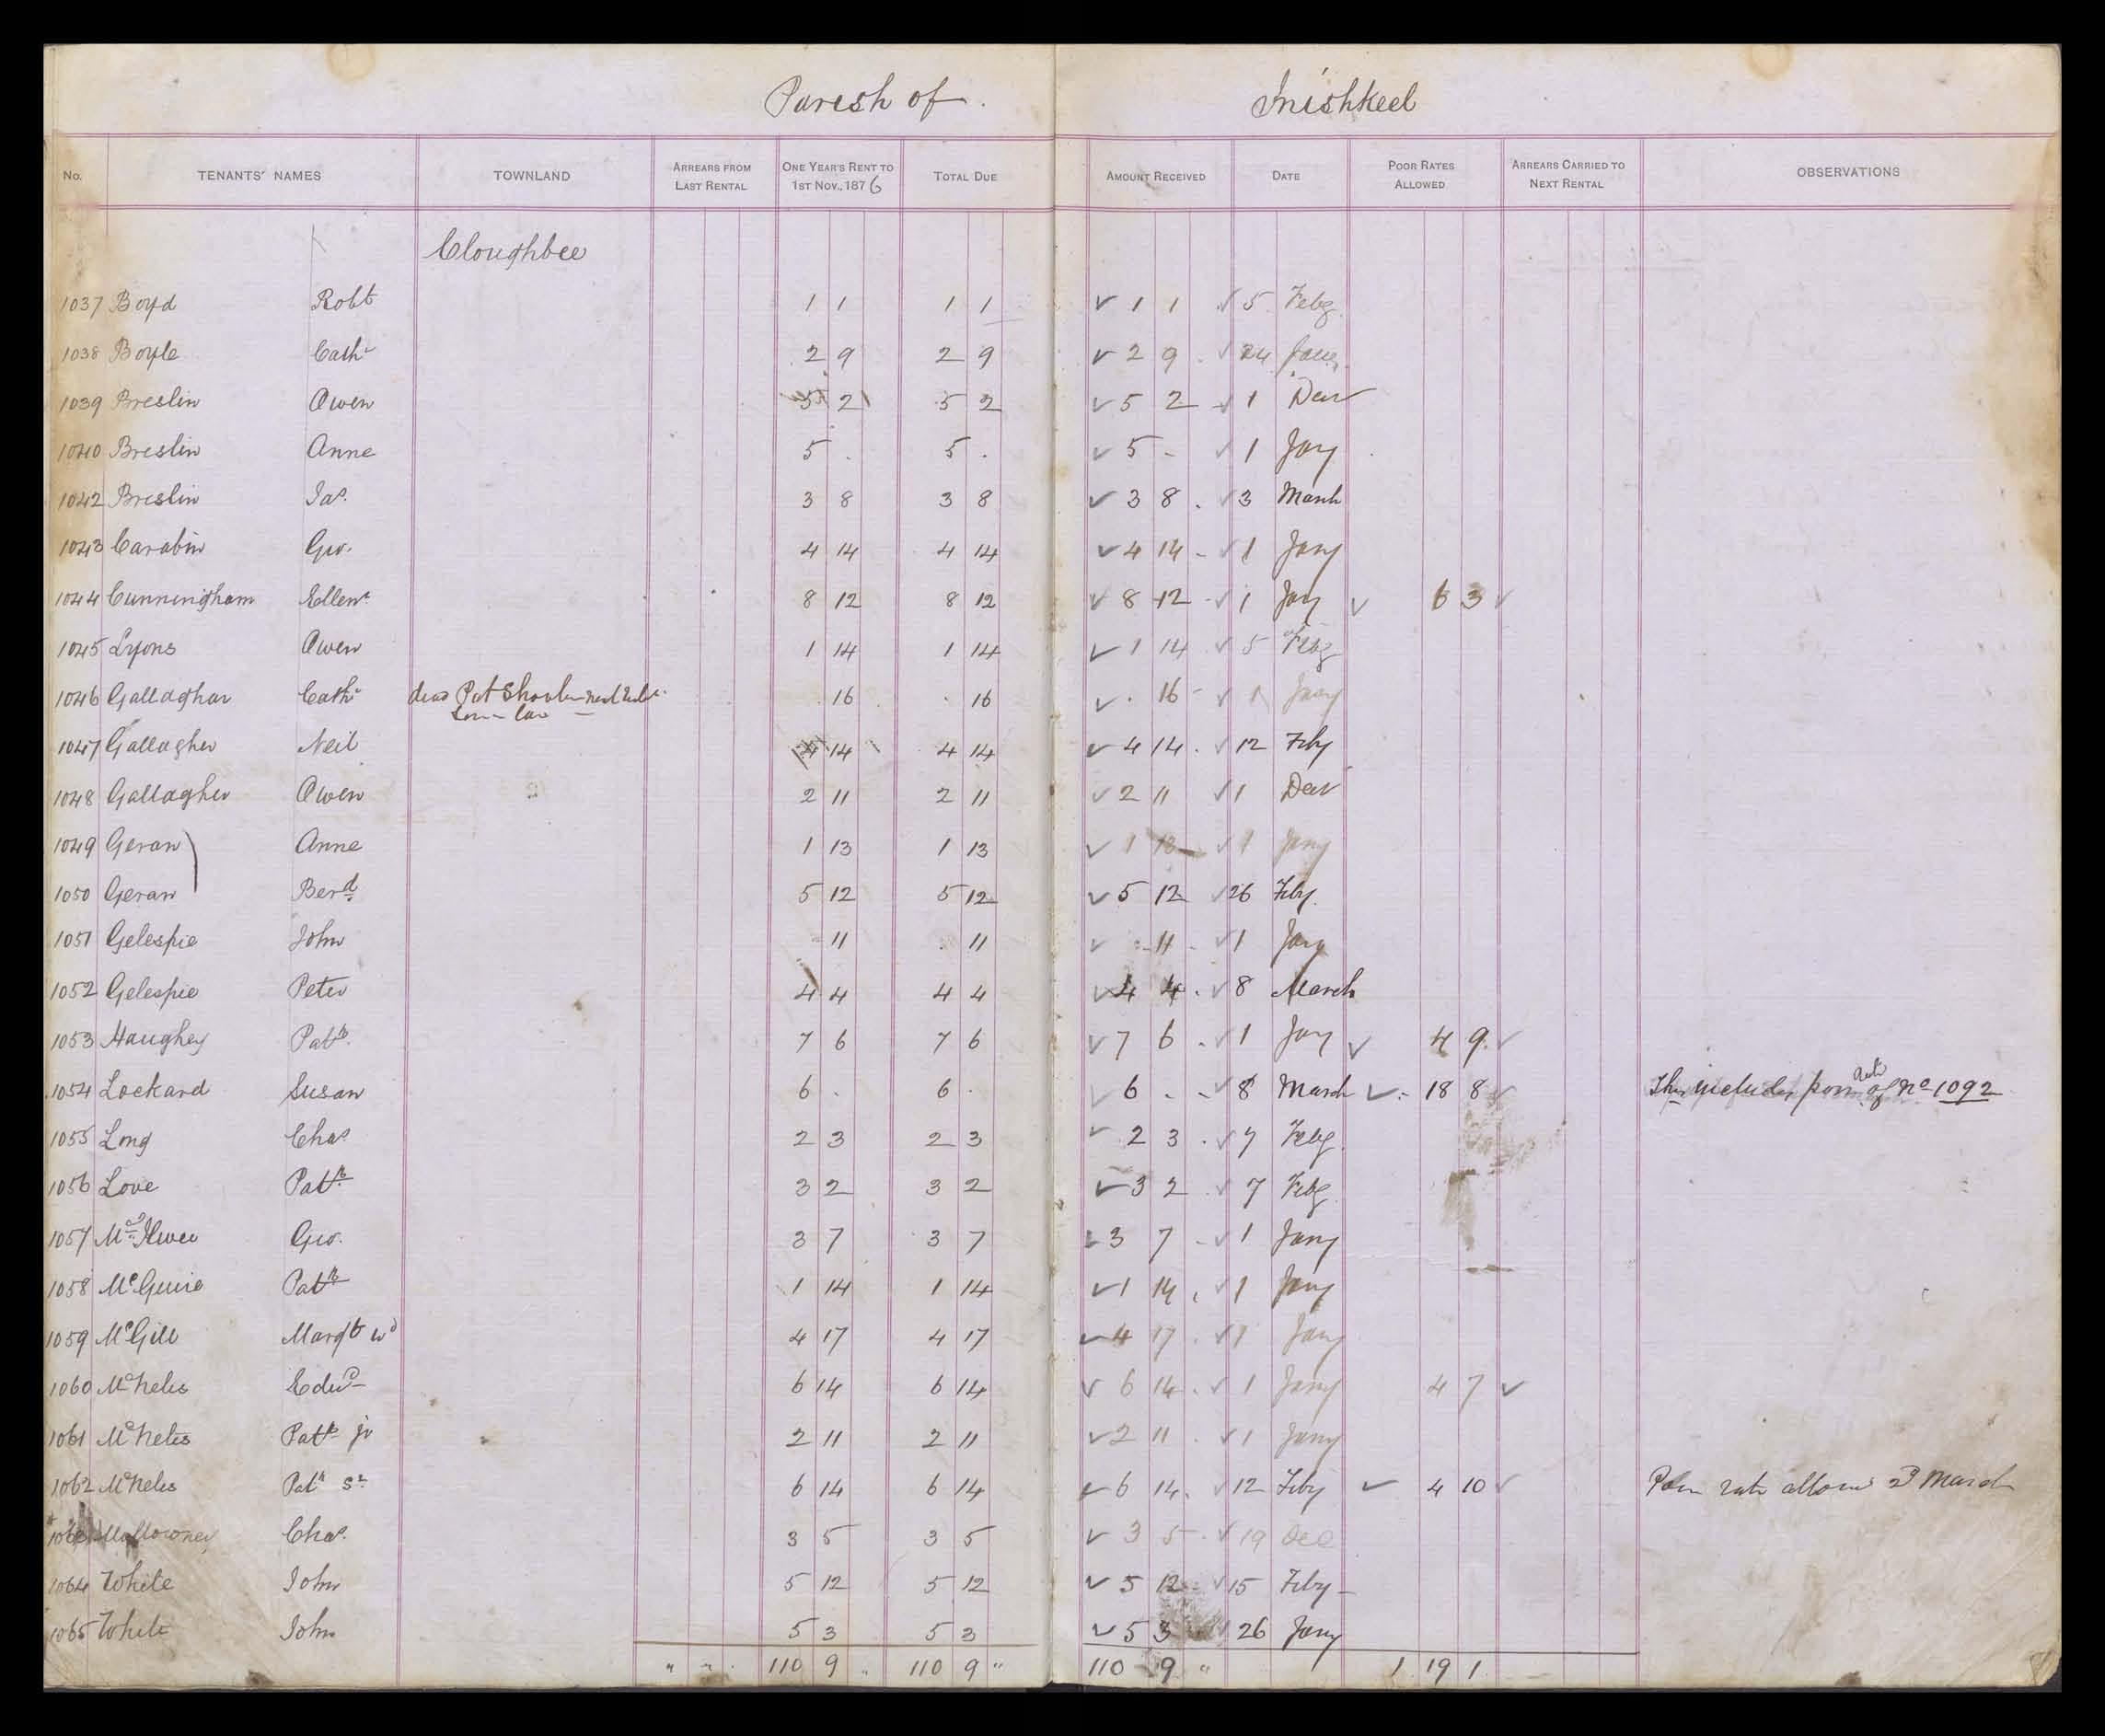 Parish of. Inishkeel
No. TENANTS' NAMES TOWNLAND ARREARS FROM LAST RENTAL ONE YEAR'S RENT TO 1ST NOV., 1876 TOTAL DUE AMOUNT RECEIVED DATE POOR RATES ALLOWED ARREARS CARRIED TO NEXT RENTAL OBSERVATIONS
Cloughbee
1037 Boyd Robt 1 1 1 1 ✓ 1 1 ✓ 5 Feby
1038 Boyle Cathe 2 9 2 9 ✓ 2 9 . ✓ 24 Jany
1039 Breslin Owen 5 2 5 2 ✓ 5 2 ✓ 1 Decr
1040 Breslin Anne 5 . 5 . ✓ 5 - ✓ 1 Jany
1042 Breslin Jas. 3 8 3 8 ✓ 3 8 . ✓ 3 March
1043 Carabin Geo. 4 14 4 14 ✓ 4 14 - ✓ 1 Jany
1044 Cunningham Ellen 8 12 8 12 ✓ 8 12 - ✓ 1 Jany ✓ 6 3 ✓
1045 Lyons Owen 1 14 1 14 ✓ 1 14 ✓ 5 Feby
1046 Gallaghar Cathe dead Pat 16 . 16 ✓ . 16 - ✓ 1 Jany
1047 Gallagher Neil 4 14 4 14 ✓ 4 14 . ✓ 12 Feby
1048 Gallagher Owen 2 11 2 11 ✓ 2 11 ✓ 1 Decr
1049 Geran Anne 1 13 1 13 ✓ 1 13 ✓ 1 Jany
1050 Geran Berd 5 12 5 12 ✓ 5 12 ✓ 26 Feby
1051 Gelespie John 11 . 11 ✓ 11 - ✓ 1 Jany
1052 Gelespie Peter 4 4 4 4 ✓ 4 4 . ✓ 8 March
1053 Haughey Patk. 7 6 7 6 ✓ 7 6 . ✓ 1 Jany ✓ 4 9 ✓
1054 Lockard Susan 6 . 6 . ✓ 6 . - ✓ 8 March ✓ 18 8 ✓ This includes poor rate of No 1092
1055 Long Chas 2 3 2 3 ✓ 2 3 . ✓ 7 Feby
1056 Love Patk 3 2 3 2 ✓ 3 2 . ✓ 7 Feby
1057 Geo. 3 7 3 7 ✓ 3 7 - ✓ 1 Jany
1058 McGuire Patk 1 14 1 14 ✓ 1 14 . ✓ 1 Jany
1059 McGill Margt wd 4 17 4 17 ✓ 4 17 . ✓ 1 Jany
1060 McNelis Edwd 6 14 6 14 ✓ 6 14 . ✓ 1 Jany 4 7 ✓
1061 McNelis Patk jr 2 11 2 11 ✓ 2 11 . ✓ 1 Jany
1062 McNelis Patk Sr 6 14 6 14 ✓ 6 14 . ✓ 12 Feby ✓ 4 10 ✓ Poor rate allowd 2d March
1063 Chas. 3 5 3 5 ✓ 3 5 . ✓ 19 Dec
1064 White John 5 12 5 12 ✓ 5 12 ✓ 15 Feby
1065 White John 5 3 5 3 ✓ 5 3 ✓ 26 Jany
" " 110 9 " 110 9 " 110 9 " 1 19 1